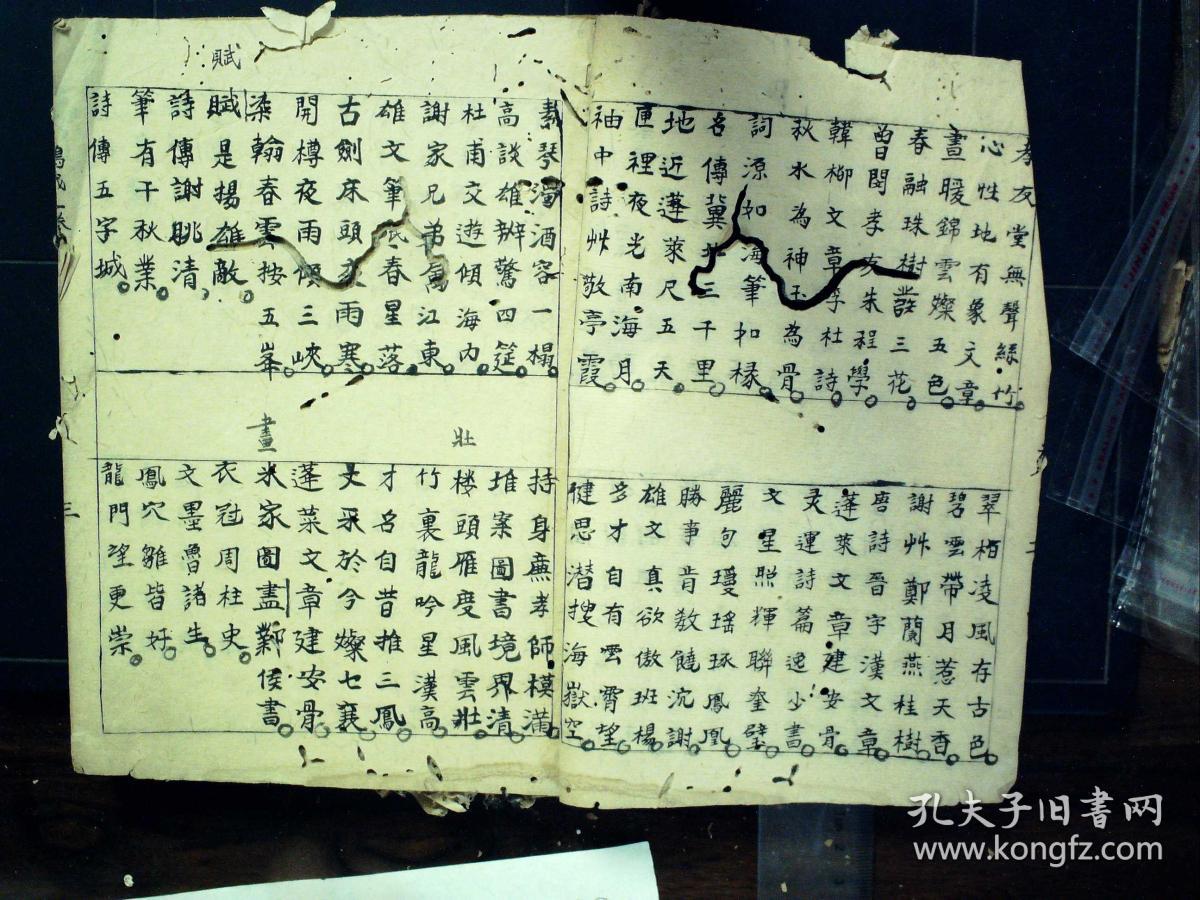 孝友堂無聲絲竹
心性地有象文章
晝暖錦雲燦五色
春融珠樹發三花
曾閔孝友朱程學
韓柳文章李杜詩
秋水為神玉為骨
詞源如海筆如椽
名傳冀北三千里
地近蓬萊尺五天
匣裡夜光南海月
袖中詩艸敬亭霞
翠栢凌風存古色
碧雲帶月惹天香
謝艸鄭蘭燕桂樹
唐詩晉字漢文章
蓬萊文章建安骨
灵運詩篇逸少書
文星照輝聯奎璧
麗句瓊瑤琢鳳凰
勝事肯教饒沉謝
雄文真欲傲班楊
多才自有雲霄望
健思潜搜海嶽空
素琴濁酒容一榻
高談雄辨驚四筵
杜甫交遊傾海內
謝家兄弟Missing江東
雄文筆Missing春星落
古劍床頭Missing雨寒
開樽夜雨傾三峽
染翰春雲按五峯
賦是揚雄敵
詩傳謝眺清
筆有千秋業
詩傳五字城
持身㢘孝師模滿
堆案圖書境界清
楼頭雁度風雲壯
竹裏龍吟星漢高
才名自昔推三鳳
文采於今燦七襄
蓬萊文章建安骨
米家圖畫鄴侯書
衣冠周柱史
文墨魯諸生
鳳穴雛皆好
龍門望更崇
賦
壯
畫
三
孔夫子旧書网
www.kongfz.com